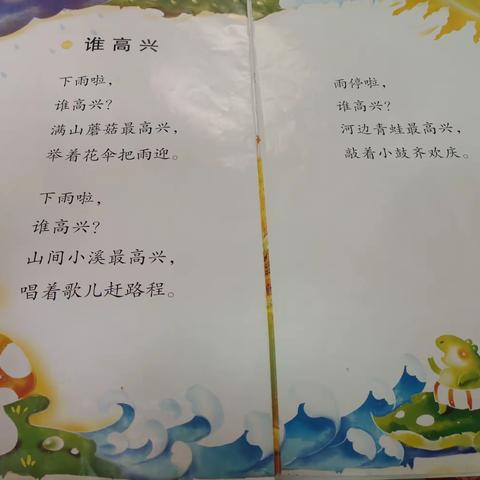 谁高兴
下雨啦，
谁高兴？
满山蘑菇最高兴，
举着花伞把雨迎。
下雨啦，
谁高兴？
山间小溪最高兴，
唱着歌儿赶路程。
雨停啦，
谁高兴？
河边青蛙最高兴，
敲着小鼓齐欢庆。